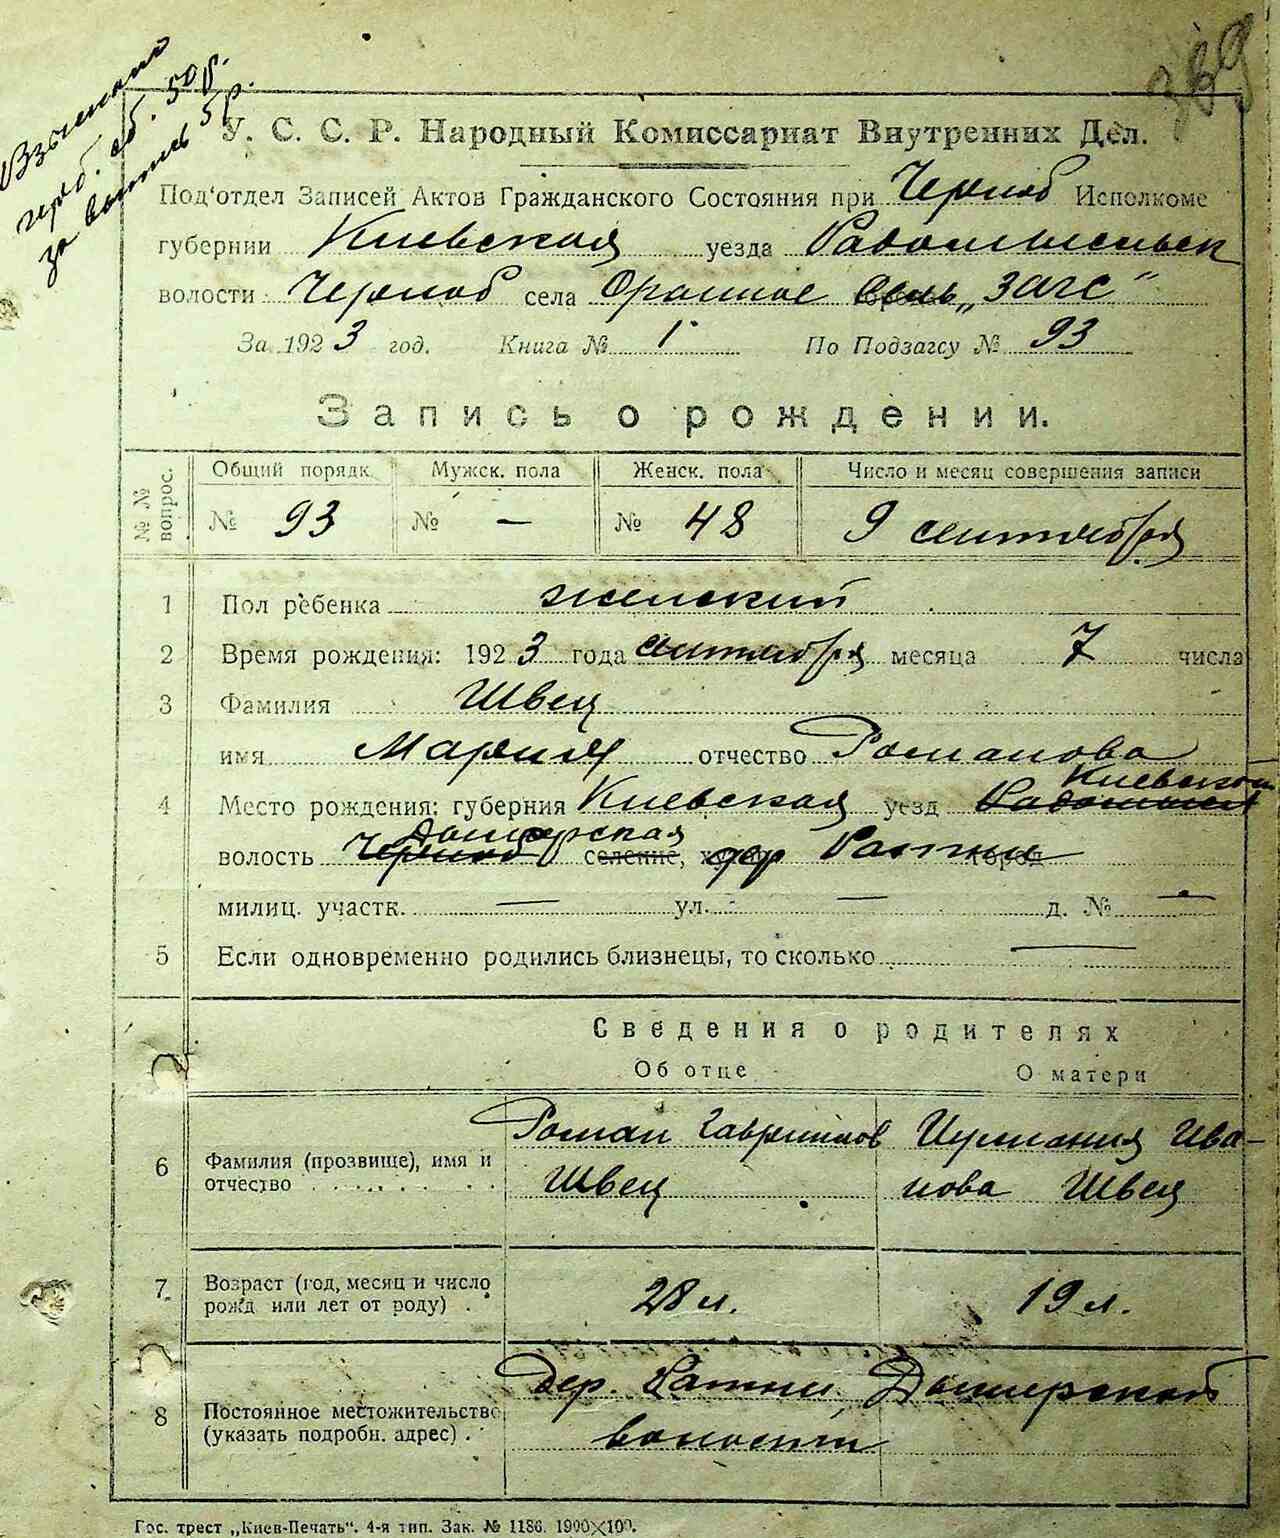 389
Взыскано
герб. сб. 50 р.
за выпись 5 р.
У. С. С. Р. Народный Комиссариат Внутренних Дел.
Под'отдел Записей Актов Гражданского Состояния при Черноб Исполкоме
губернии Киевская уезда Радомысльск
волости Черноб села Оранное „ЗАГС“
За 1923 год. Книга № 1 По Подзагсу № 93
Запись о рождении.
№ № вопрос. Общий порядк. Мужск. пола Женск. пола Число и месяц совершения записи
№ 93 № — № 48 9 сентября
1 Пол ребенка женский
2 Время рождения: 1923 года сентября месяца 7 числа
3 Фамилия Швец
имя Мария отчество Романова
Киевской
4 Место рождения: губерния Киевская уезд Радомысл
Дымерская
волость Черноб селение, дер Ратни город
милиц. участк. — ул. — д. № —
5 Если одновременно родились близнецы, то сколько —
Сведения о родителях
Об отце О матери
Роман Гаврилов Ива-
6 Фамилия (прозвище), имя и отчество Швец нова Швец
7 Возраст (год, месяц и число рожд или лет от роду) 28 л. 19 л.
дер. Ратни, Дымерской
8 Постоянное местожительство (указать подробн. адрес) волости
Гос. трест „Киев-Печать“. 4-я тип. Зак. № 1186. 1900×100.